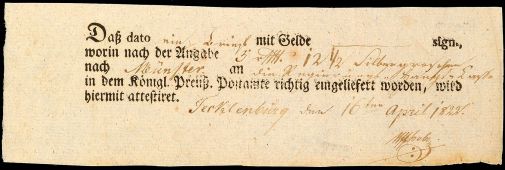 Daß dato ein Brief mit Gelde sign.,
worin nach der Angabe 5 rth. 12 1/2 Silbergroschen
nach Münster an die Regierungs Haupt Casse
in dem Königl. Preuß. Postamte richtig eingeliefert worden, wird
hiermit attestiret. Tecklenburg den 16ten April 1822.